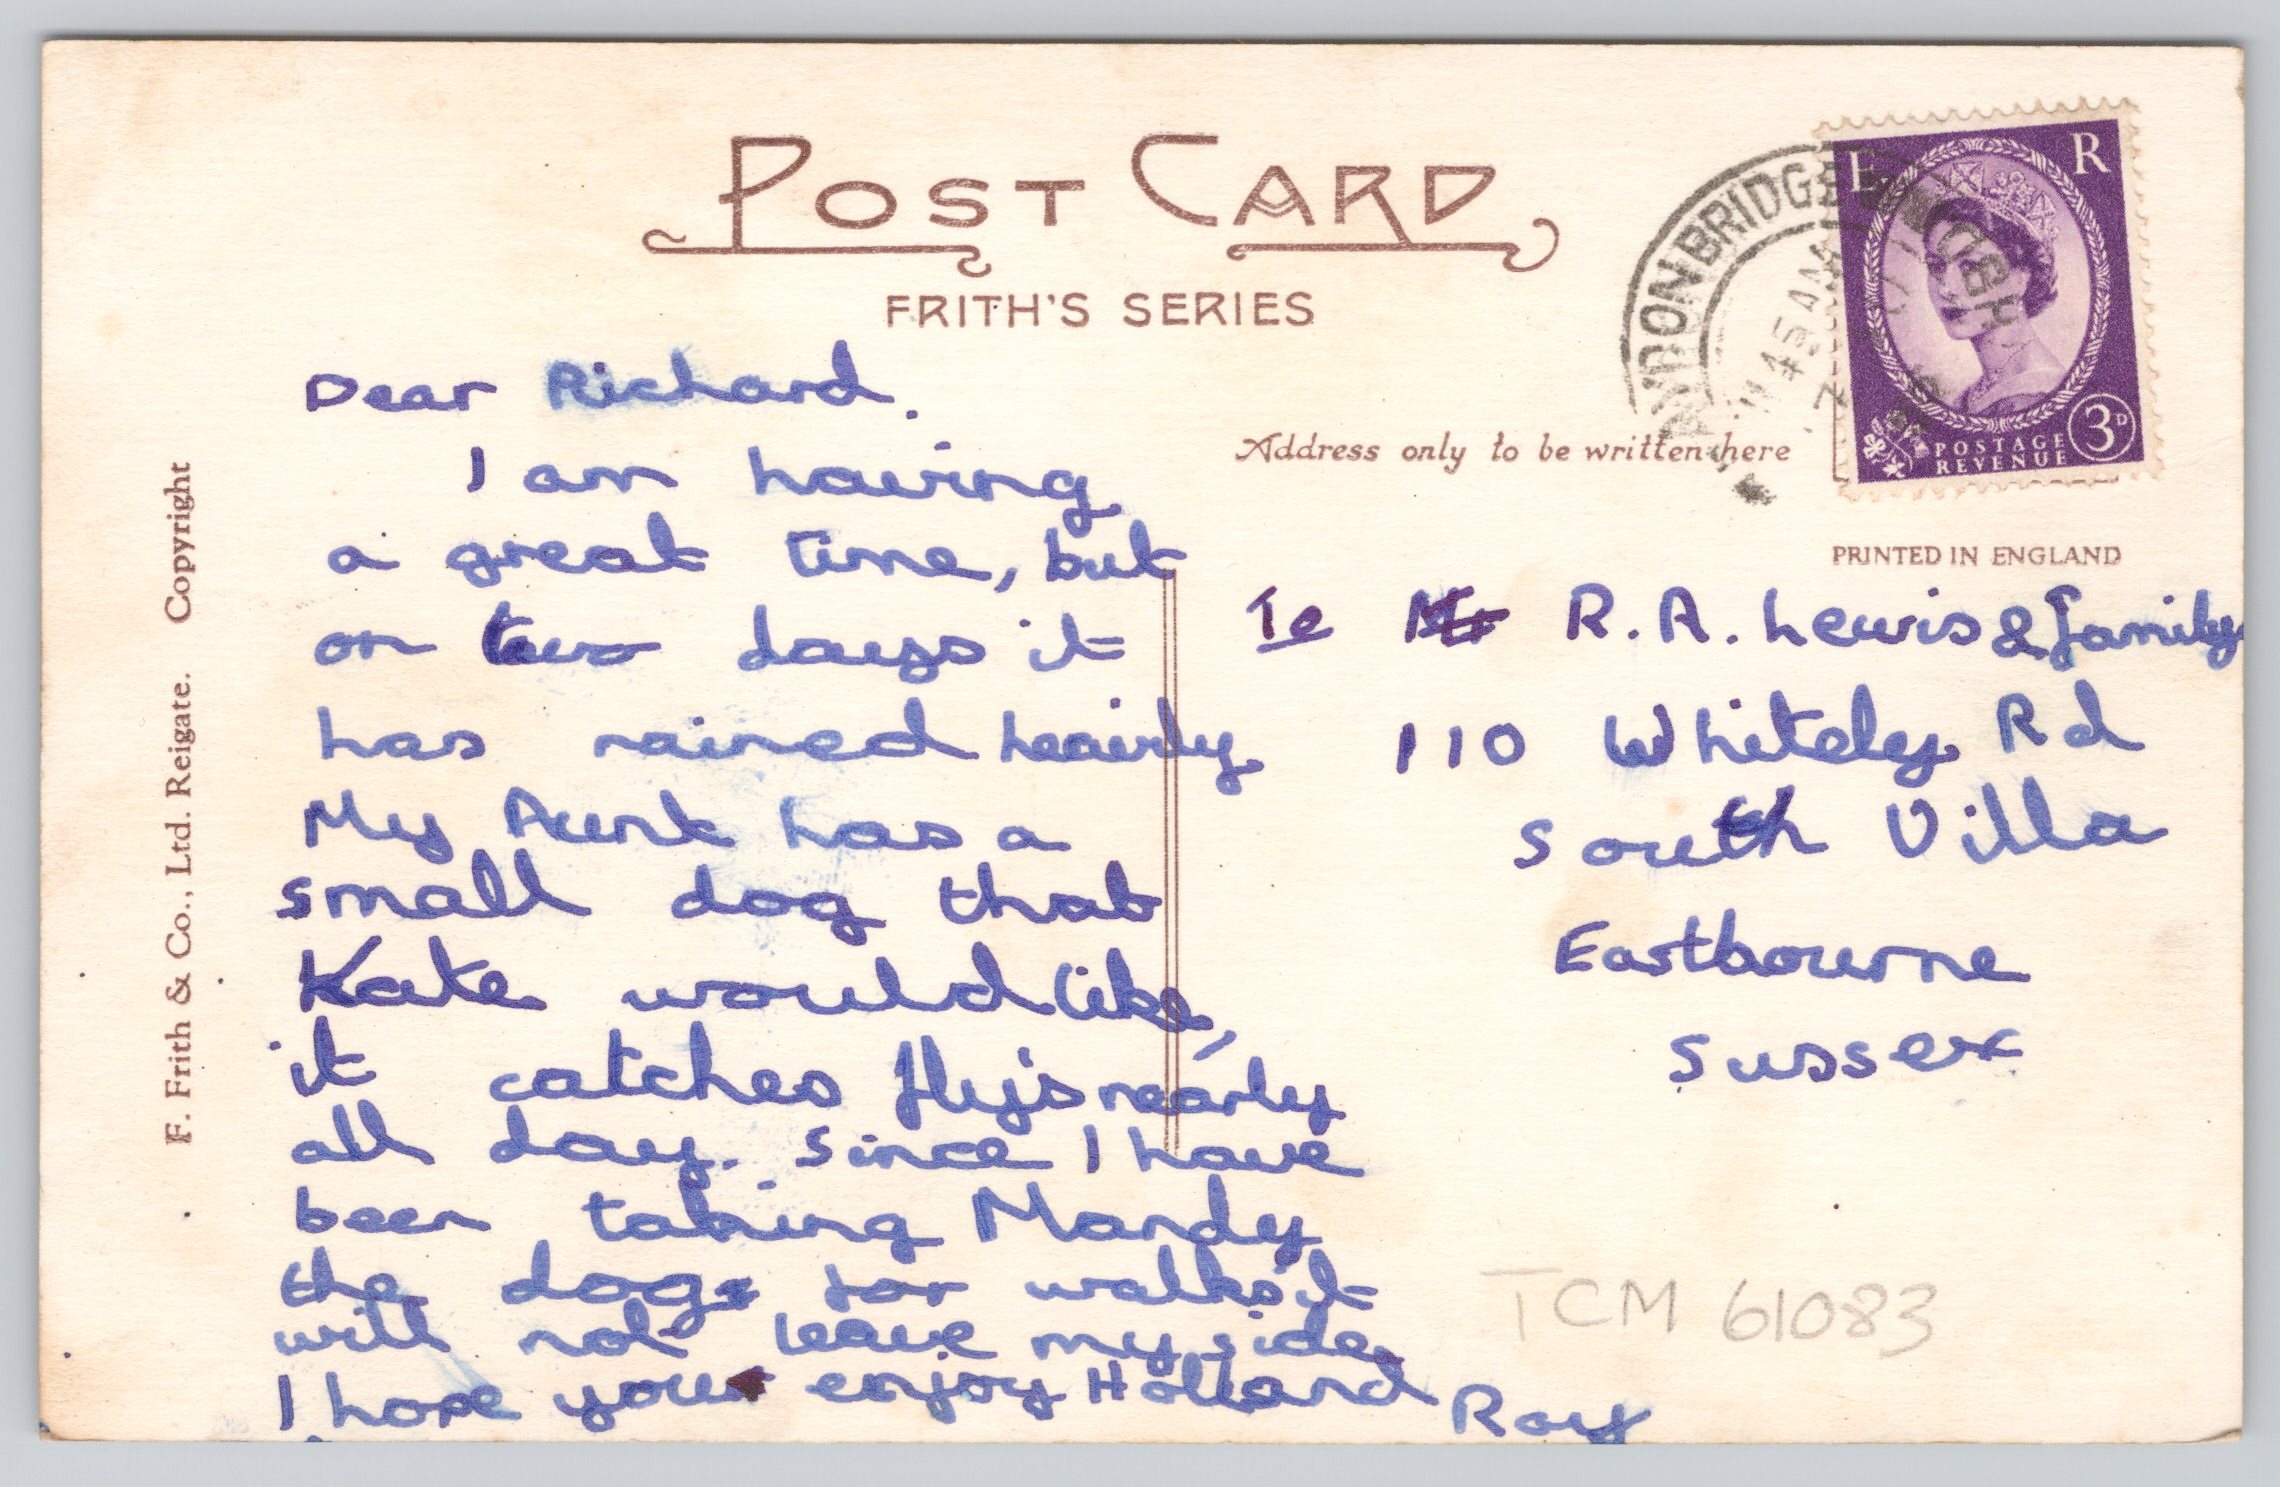 POST CARD
FRITH'S SERIES
F. Frith & Co., Ltd. Reigate. Copyright
Dear Richard.
I am having
a great time, but
on two days it
has rained heavily
My Aunt has a
small dog that
Kate would like,
it catches flys nearly
all day. Since I have
been taking Mandy
the dog for walks it
will not leave my side.
I hope you enjoy Holland
Roy
Address only to be written here
PRINTED IN ENGLAND
E R
POSTAGE
REVENUE
3D
BRIDGE
11 45 AM
To R. A. Lewis & family
110 Whiteley Rd
South Villa
Eastbourne
Sussex
TCM 61083